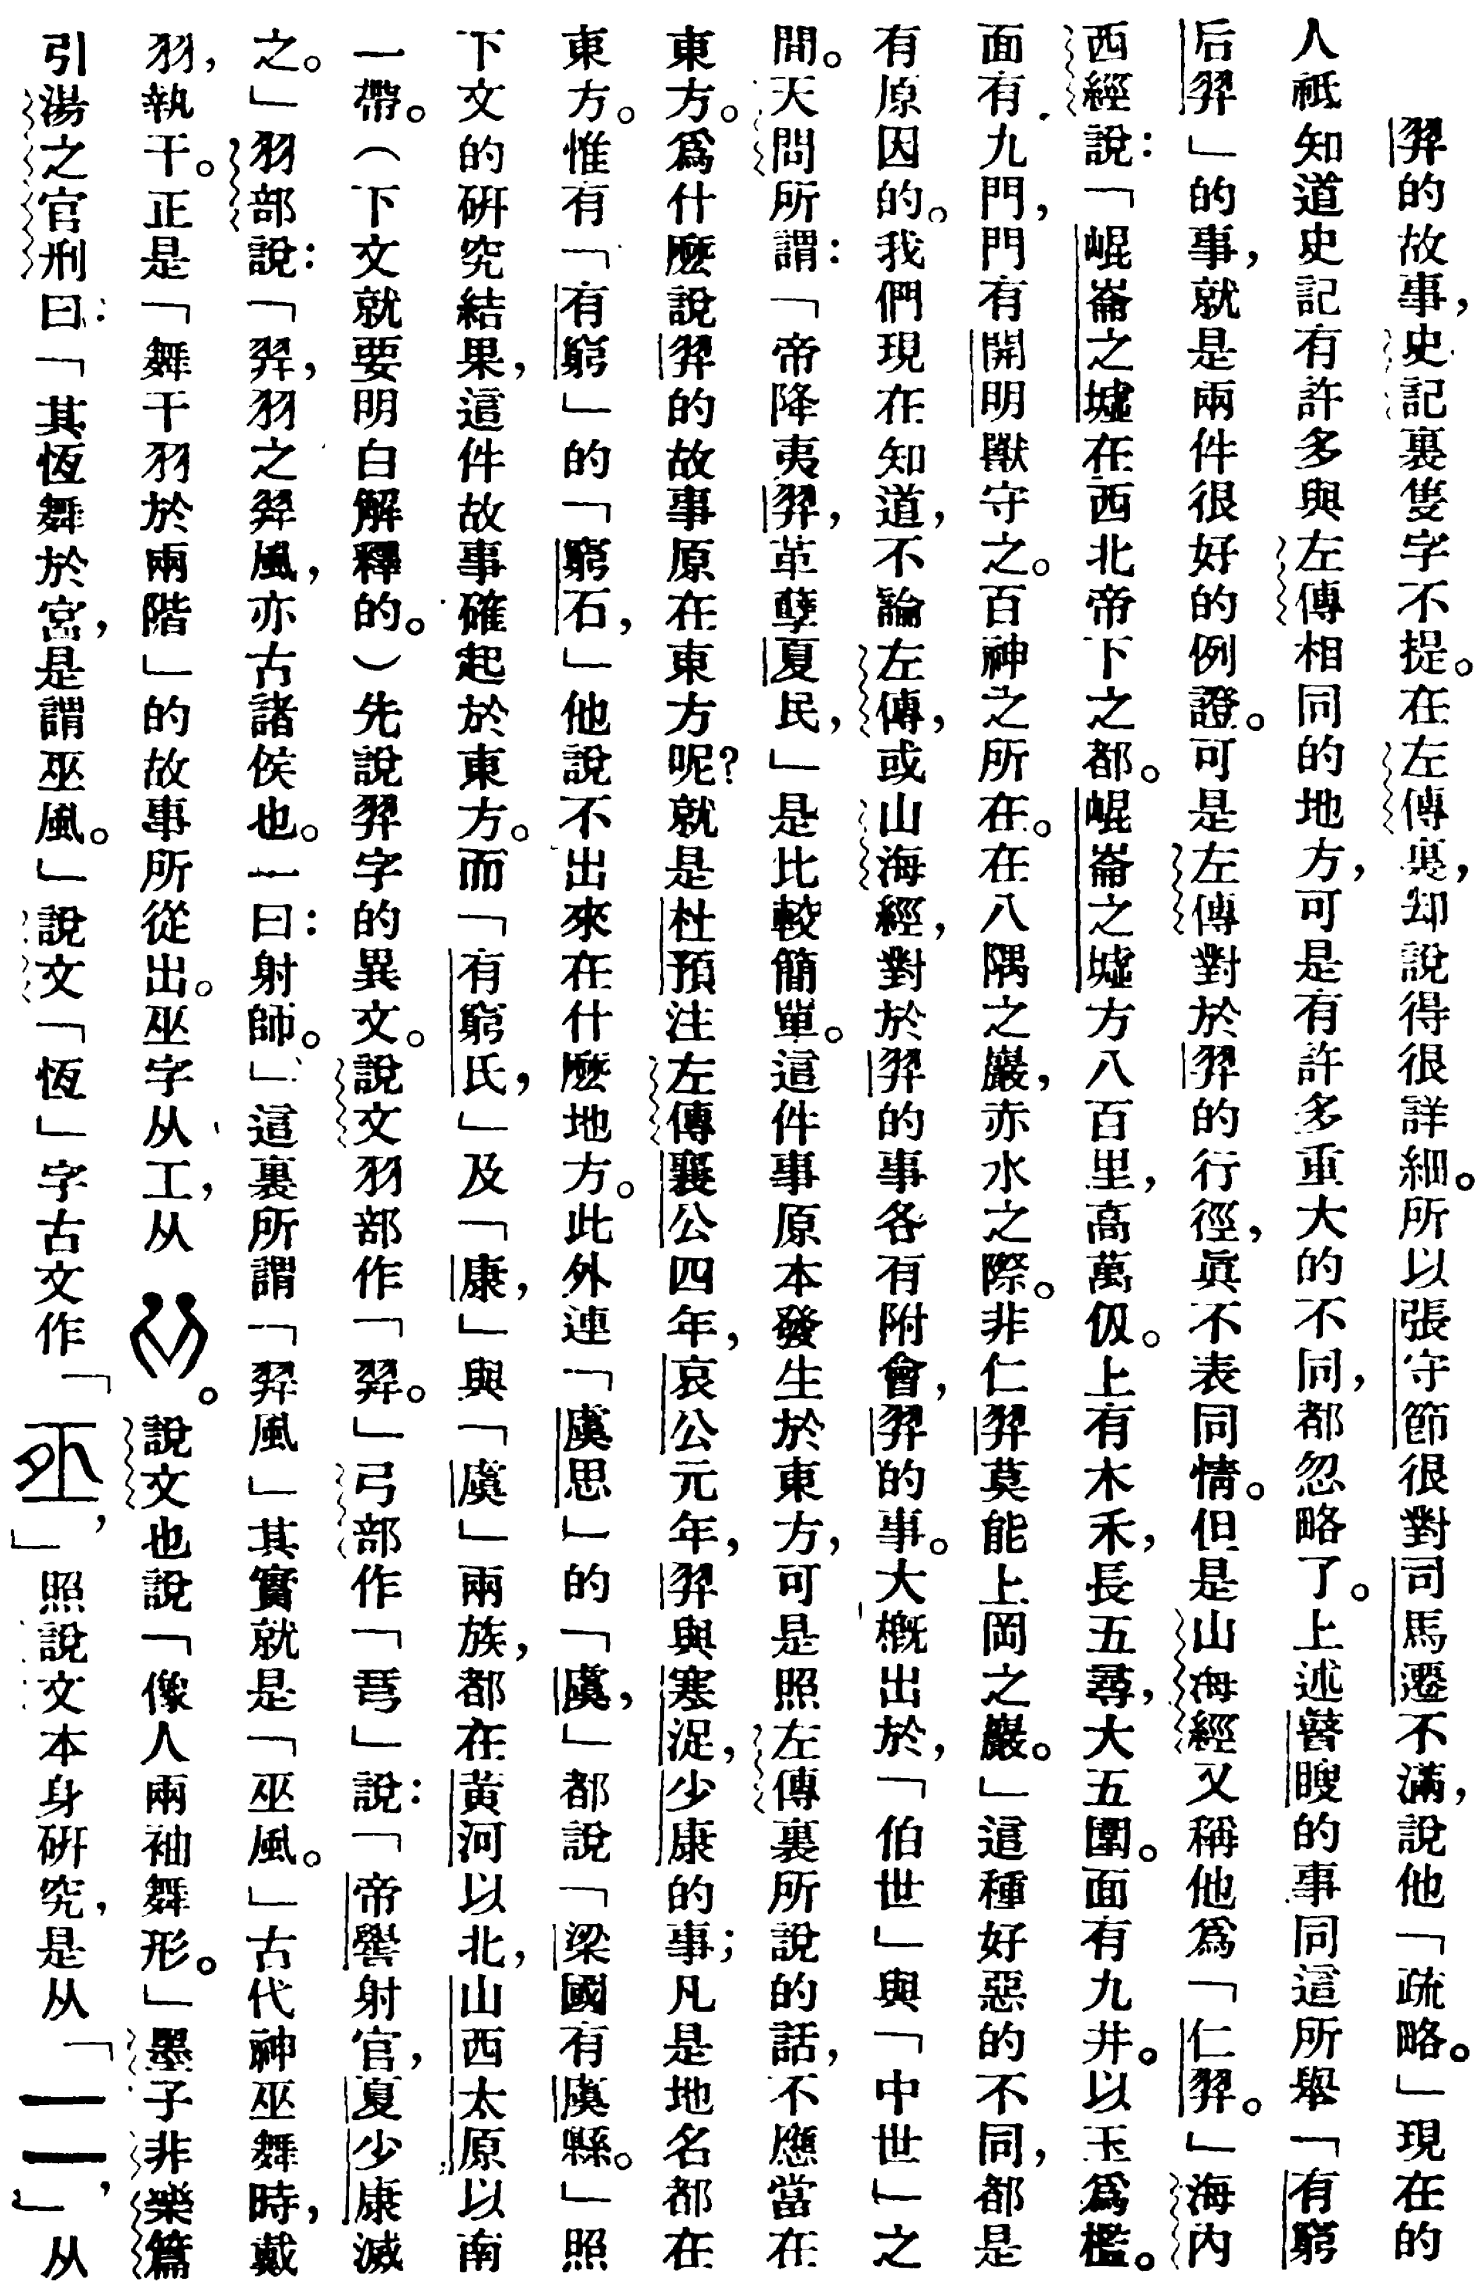 羿的故事，史記裏隻字不提。在左傳裏，却說得很詳細。所以張守節很對司馬遷不滿，說他「疏略。」現在的
人祗知道史記有許多與左傳相同的地方，可是有許多重大的不同，都忽略了。上述瞽瞍的事同這所舉「有窮
后羿」的事，就是兩件很好的例證。可是左傳對於羿的行徑，眞不表同情。但是山海經又稱他爲「仁羿。」海內
西經說：「崐崙之墟在西北帝下之都。崐崙之墟方八百里，高萬仭。上有木禾，長五尋，大五圍。面有九井。以玉爲檻。
面有九門，門有開明獸守之。百神之所在。在八隅之巖，赤水之際。非仁羿莫能上岡之巖。」這種好惡的不同，都是
有原因的。我們現在知道，不論左傳，或山海經，對於羿的事各有附會，羿的事。大槪出於，「伯世」與「中世」之
間。天問所謂：「帝降夷羿，革孽夏民，」是比較簡單。這件事原本發生於東方，可是照左傳裏所說的話，不應當在
東方。爲什麼說羿的故事原在東方呢？就是杜預注左傳襄公四年，哀公元年，羿與寒浞，少康的事；凡是地名都在
東方。惟有「有窮」的「窮石，」他說不出來在什麼地方。此外連「虞思」的「虞，」都說「梁國有虞縣。」照
下文的硏究結果，這件故事確起於東方。而「有窮氏，」及「康，」與「虞」兩族，都在黃河以北，山西太原以南
一帶。（下文就要明白解釋的。）先說羿字的異文。說文羽部作「羿。」弓部作「𢏗」說：「帝嚳射官，夏少康滅
之。」羽部說：「羿，羽之羿風，亦古諸侯也。一曰：射師。」這裏所謂「羿風」其實就是「巫風。」古代神巫舞時，戴
羽，執干。正是「舞干羽於兩階」的故事所從出。巫字从工，从。說文也說「像人兩袖舞形。」墨子非樂篇
引湯之官刑曰：「其恆舞於宮，是謂巫風。」說文「恆」字古文作「，」照說文本身硏究，是从「二，」从